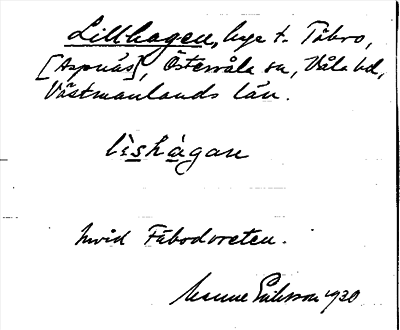 Lillhagen, hage t. Tåbro,
[Aspnäs], Östervåla sn, Våla hd,
Västmanlands län.
lìshágan
invid Fäbodvreten.
Manne Eriksson 1930